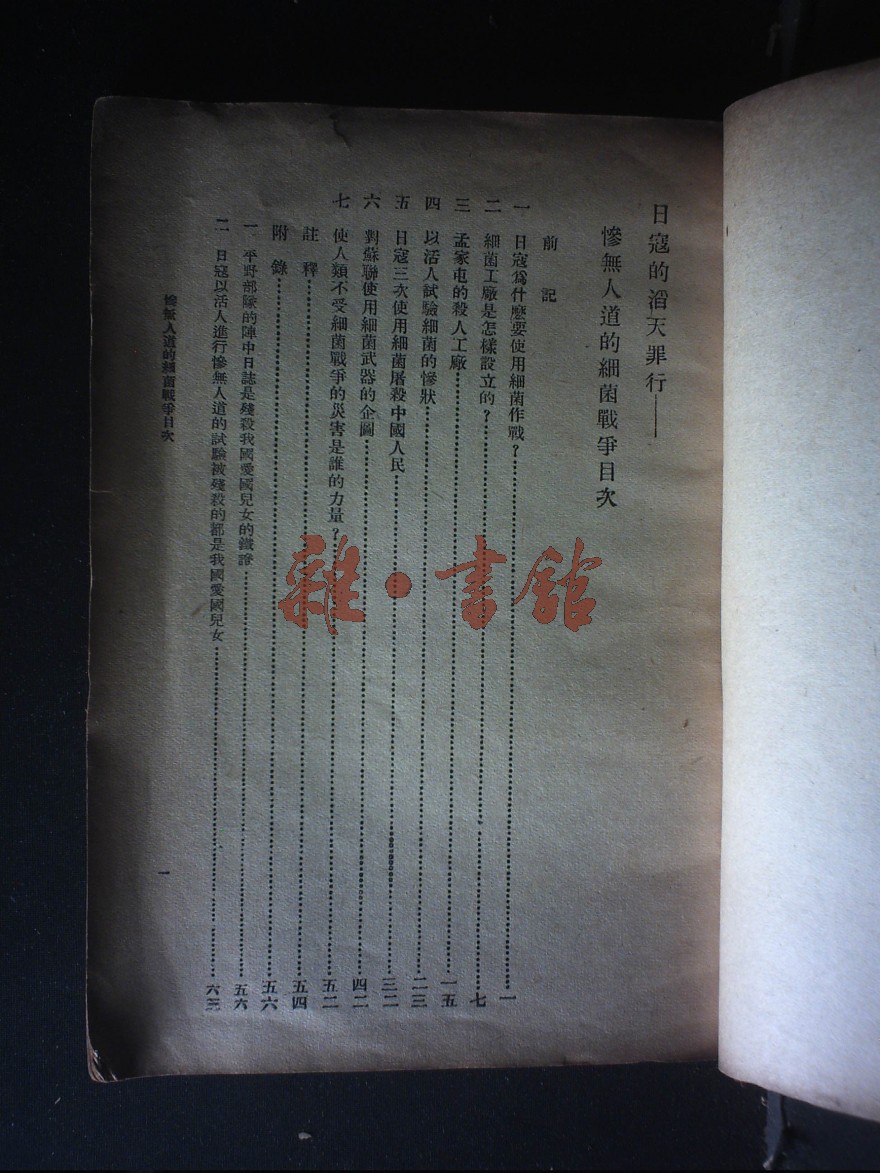 日寇的滔天罪行——
慘無人道的細菌戰爭目次
前記
一 日寇爲什麽要使用細菌作戰?……一
二 細菌工廠是怎樣設立的?……七
三 孟家屯的殺人工廠……一五
四 以活人試驗細菌的慘狀……二三
五 日寇三次使用細菌屠殺中國人民……三二
六 對蘇聯使用細菌武器的企圖……四二
七 使人類不受細菌戰爭的災害是誰的力量?……五二
註釋……五四
附錄……五六
一 平野部隊的陣中日誌是殘殺我國愛國兒女的鐵證……五六
二 日寇以活人進行慘無人道的試驗被殘殺的都是我國愛國兒女……六三
慘無人道的細菌戰爭目次
一
雜·書館